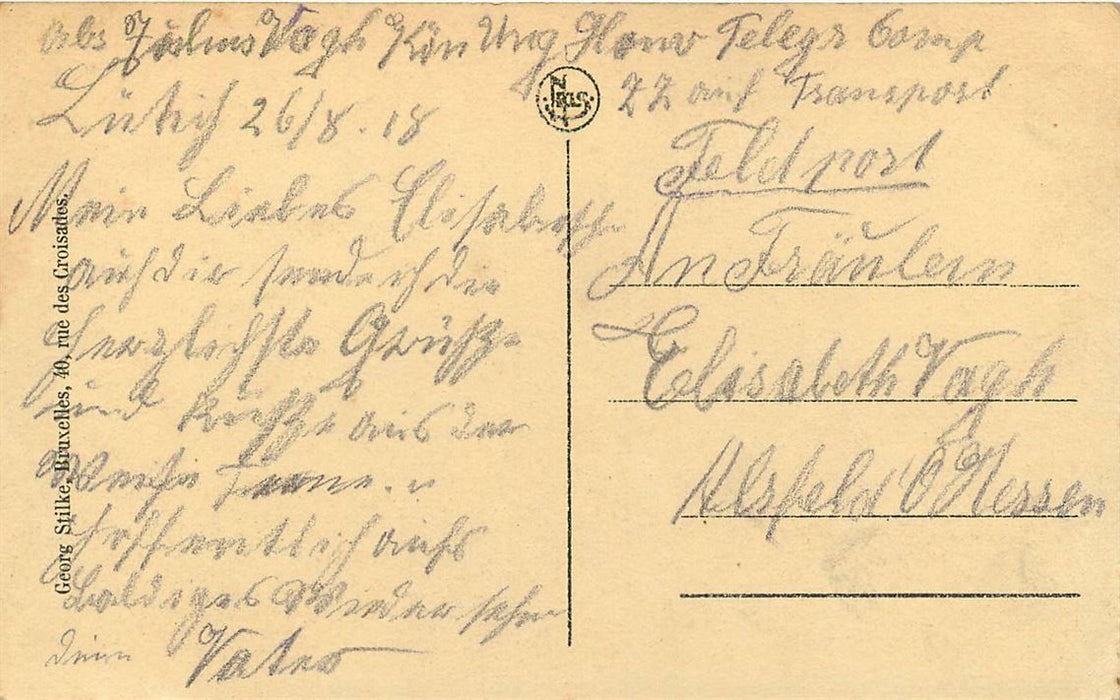 Abs Julius Vagh Kön Ung Honv Telegr Comp
22 auf Transport
Lüttich 26/8.18
Feldpost
Mein Liebes Elisabethche
auch dir sende ich die
herzlichste Grüsse
und Küsse aus der
Weite Ferne. u
hoffentlich aufs
baldiges Wiedersehn
dein Vater
An Fräulein
Elisabeth Vagh
Alsfeld O Hessen
Georg Stilke, Bruxelles, 40, rue des Croisades.